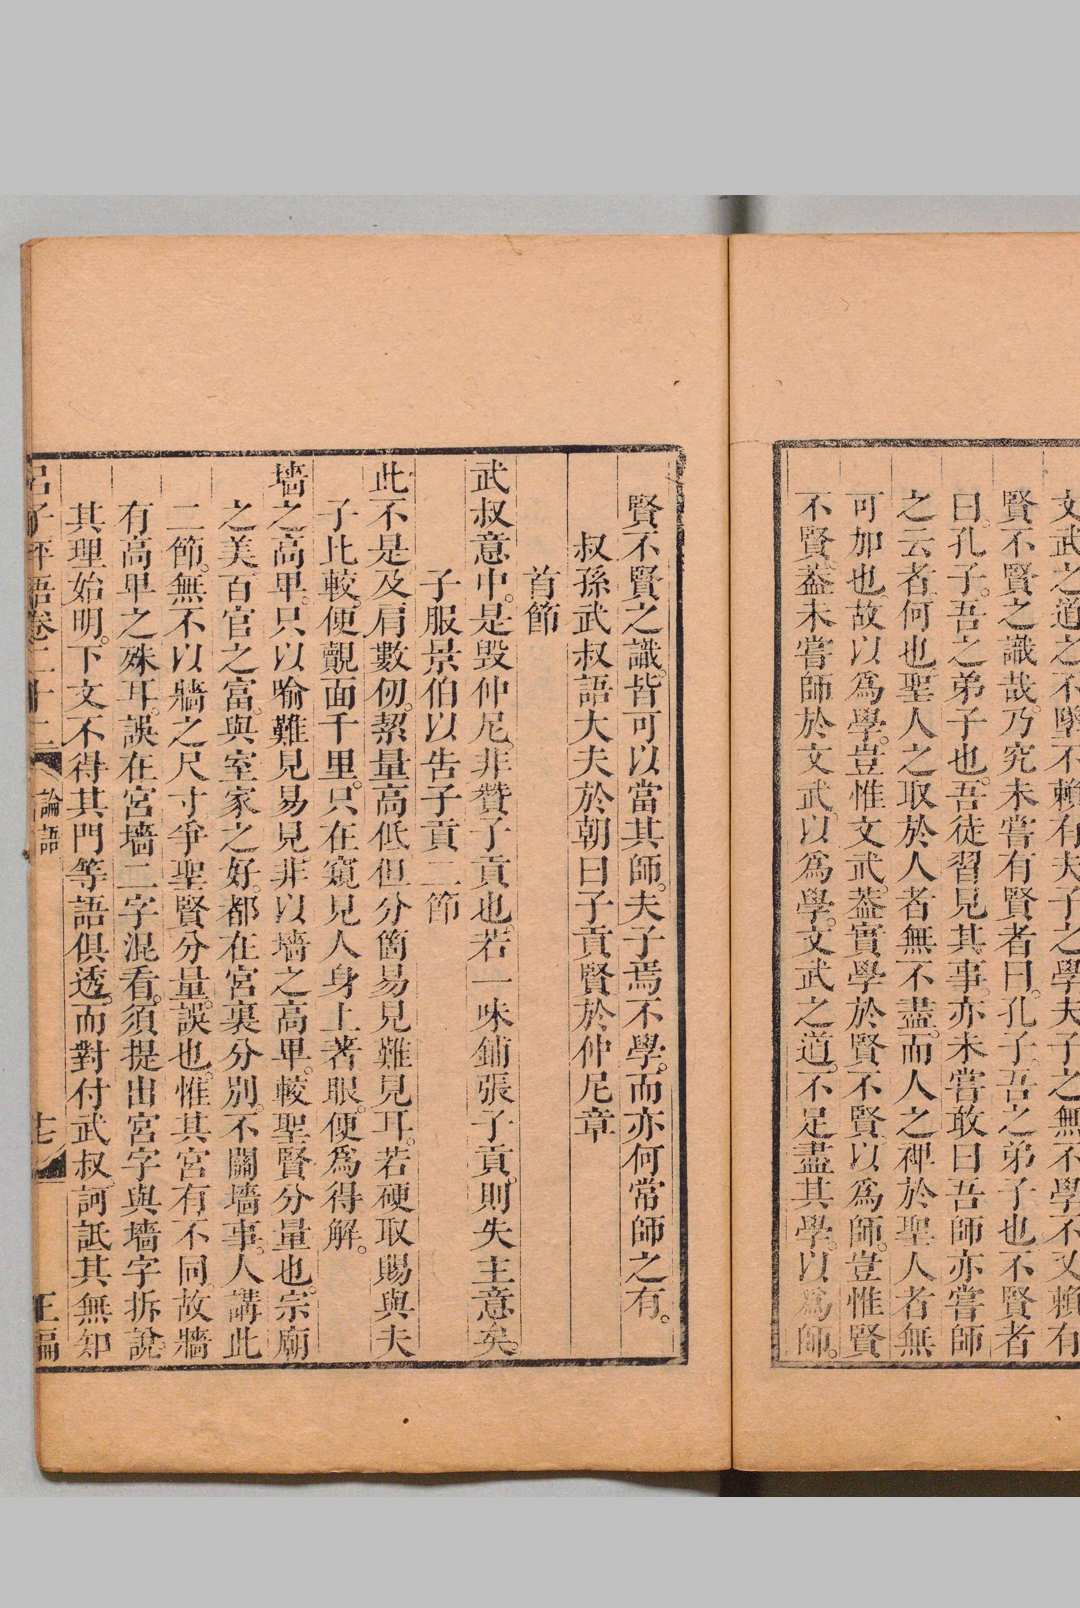 文武之道之不墜不賴有夫子之學夫子之無不學不又賴有
賢不賢之識哉乃究未嘗有賢者曰孔子吾之弟子也不賢者
曰孔子吾之弟子也吾徒習見其事亦未嘗敢曰吾師亦嘗師
之云者何也聖人之取於人者無不盡而人之裨於聖人者無
可加也故以爲學豈惟文武葢實學於賢不賢以爲師豈惟賢
不賢葢未嘗師於文武以爲學文武之道不足盡其學以爲師
賢不賢之識皆可以當其師夫子焉不學而亦何常師之有
叔孫武叔語大夫於朝曰子貢賢於仲尼章
首節
武叔意中是毀仲尼非贊子貢也若一味鋪張子貢則失主意矣
子服景伯以告子貢二節
此不是及肩數仞絜量高低但分箇易見難見耳若硬取賜與夫
子比較便覿面千里只在窺見人身上著眼便爲得解
墻之高卑只以喻難見易見非以墻之高卑較聖賢分量也宗廟
之美百官之富與室家之好都在宮裏分別不關墻事人講此
二節無不以牆之尺寸爭聖賢分量誤也惟其宮有不同故牆
有高卑之殊耳誤在宮墻二字混看須提出宮字與墻字拆說
其理始明下文不得其門等語俱透而對付武叔訶詆其無知
呂子評語卷二十二 論語 七 正編